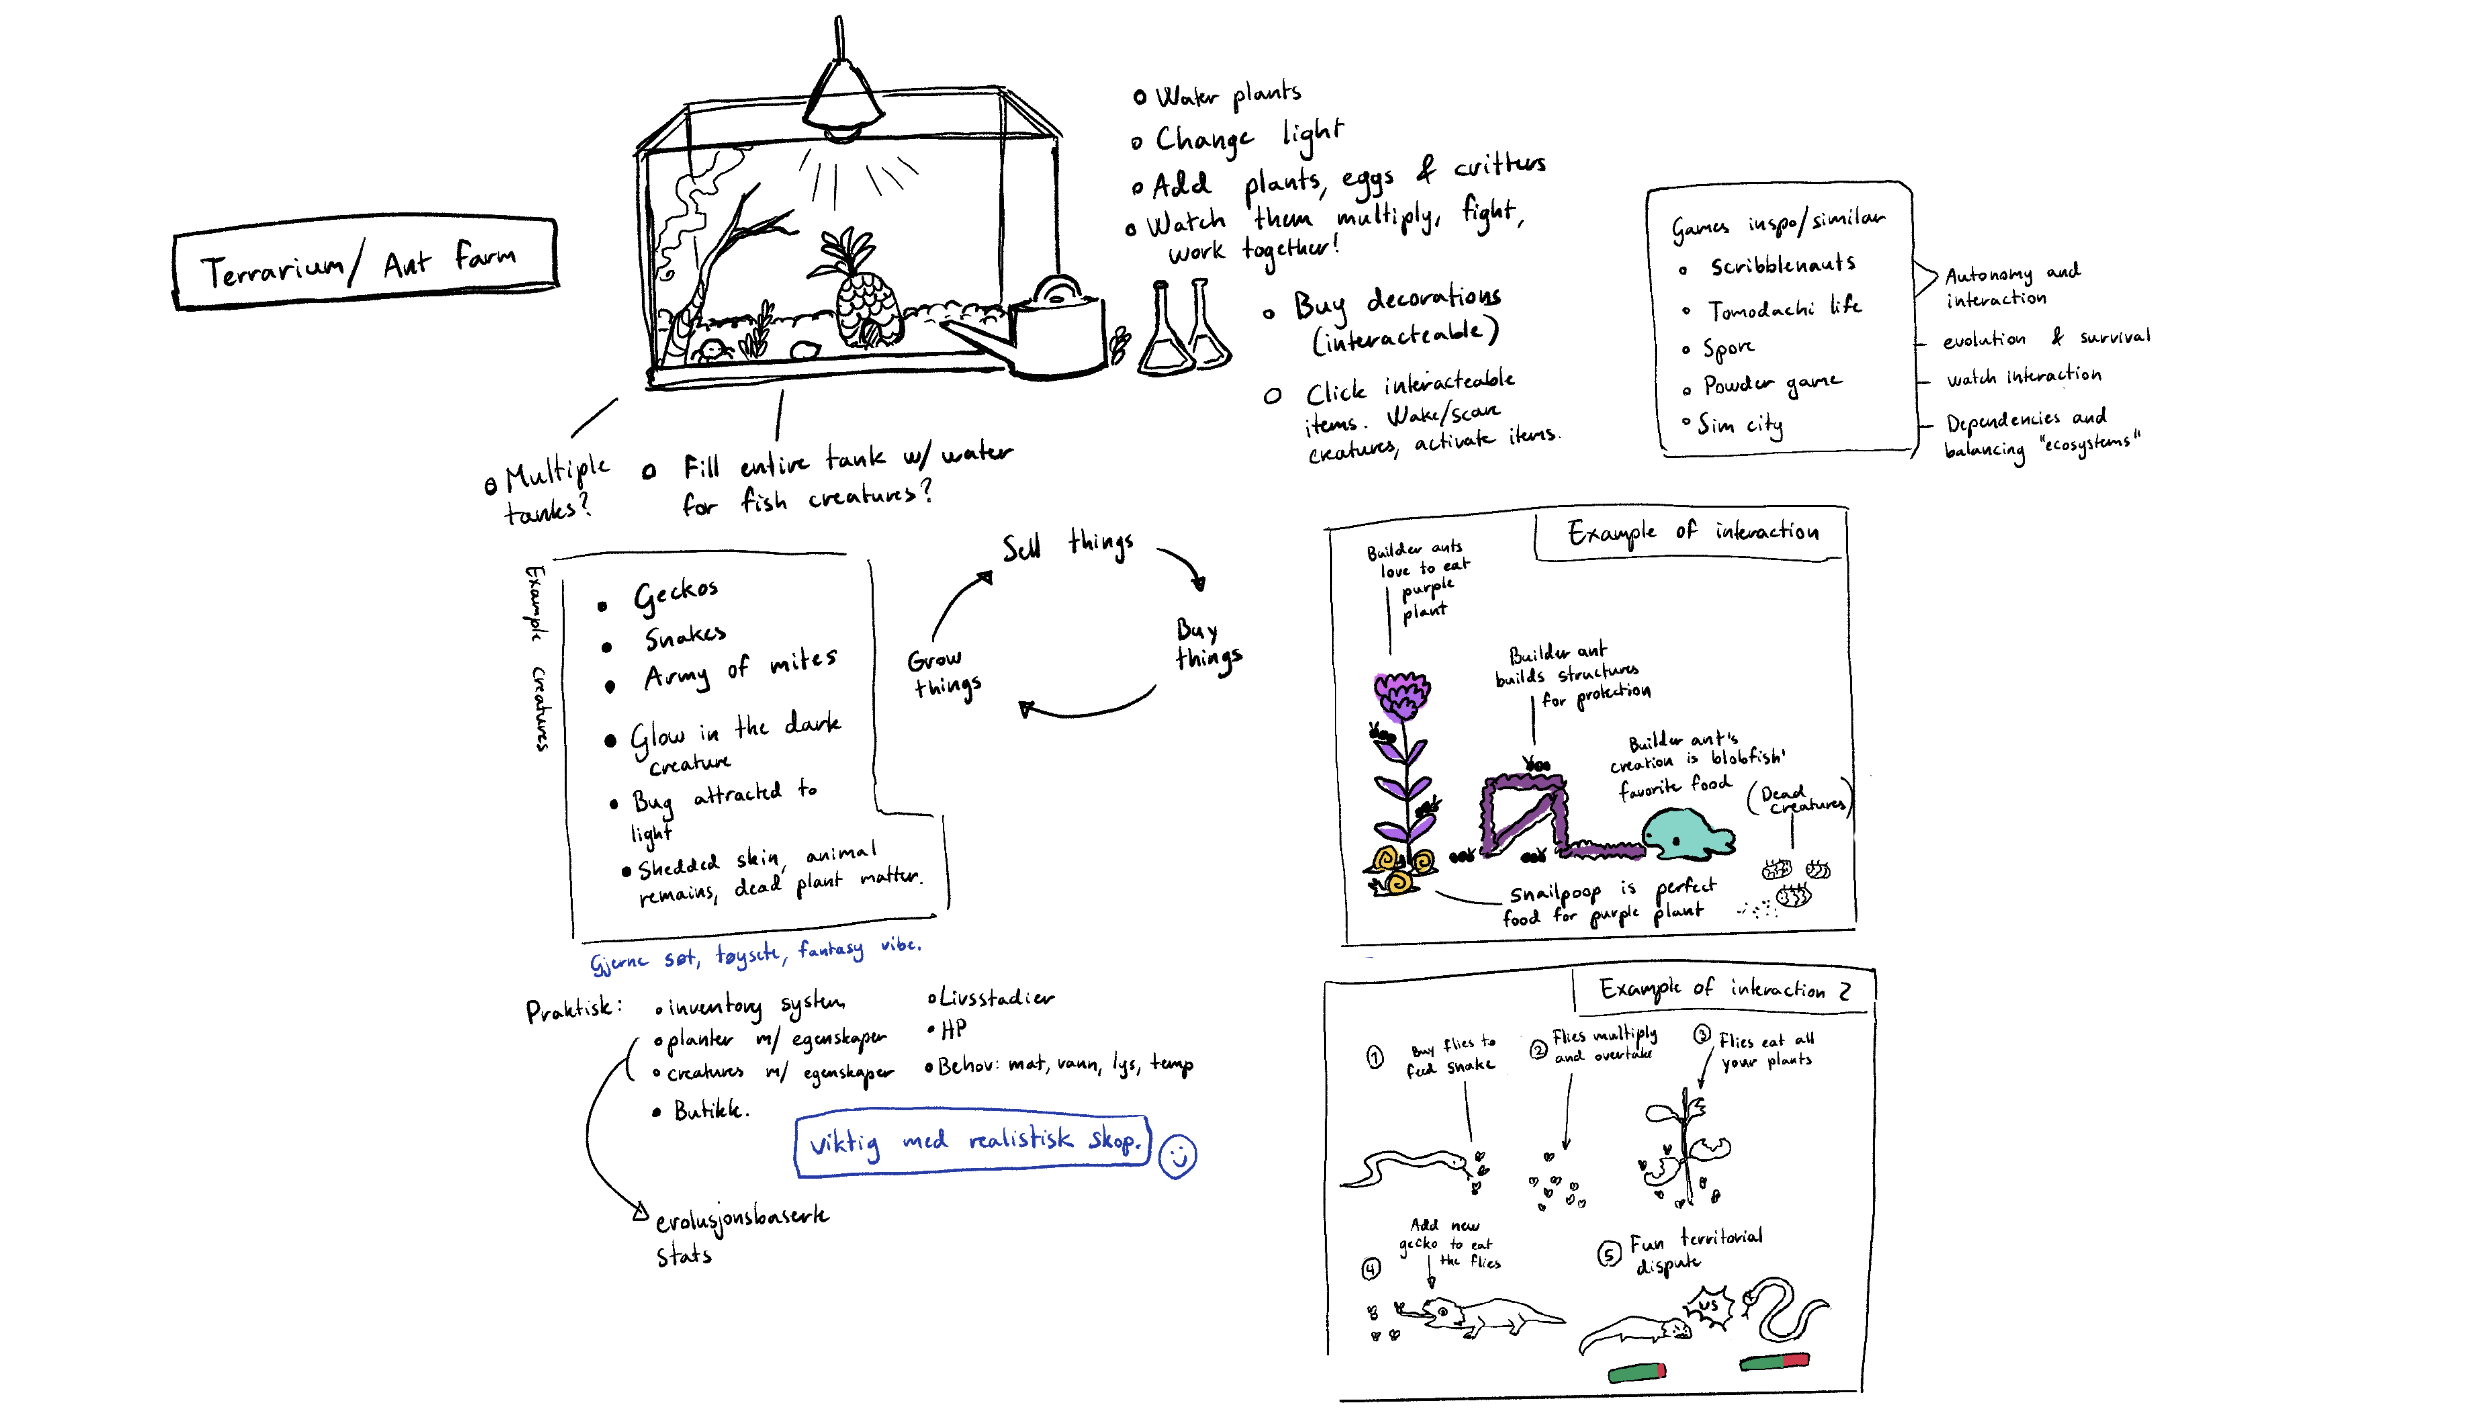 Terrarium/ Ant farm
Water plants
Change light
Add plants, eggs & critters
Watch them multiply, fight,
work together!
Buy decorations
(interacteable)
Click interacteable
items. Wake/scare
creatures, activate items.
Multiple
tanks?
Fill entire tank w/ water
for fish creatures?
Games inspo/similar
Scribblenauts
Tomodachi life
Spore
Powder game
Sim city
Autonomy and
interaction
evolution & survival
watch interaction
Dependencies and
balancing "ecosystems"
Example creatures
Geckos
Snakes
Army of mites
Glow in the dark
creature
Bug attracted to
light
Shedded skin, animal
remains, dead plant matter.
Gjerne søt, tøysete, fantasy vibe.
Sell things
Buy
things
Grow
things
Praktisk:
inventory system
planter m/ egenskaper
creatures m/ egenskaper
Butikk.
Livsstadier
HP
Behov: mat, vann, lys, temp
viktig med realistisk skop.
evolusjonsbaserte
stats
Example of interaction
Builder ants
love to eat
purple
plant
Builder ant
builds structures
for protection
Builder ant's
creation is blobfish'
favorite food
(Dead
creatures)
Snailpoop is perfect
food for purple plant
Example of interaction 2
1 Buy flies to
feed snake
2 Flies multiply
and overtake
3 Flies eat all
your plants
4 Add new
gecko to eat
the flies
5 Fun territorial
dispute
VS